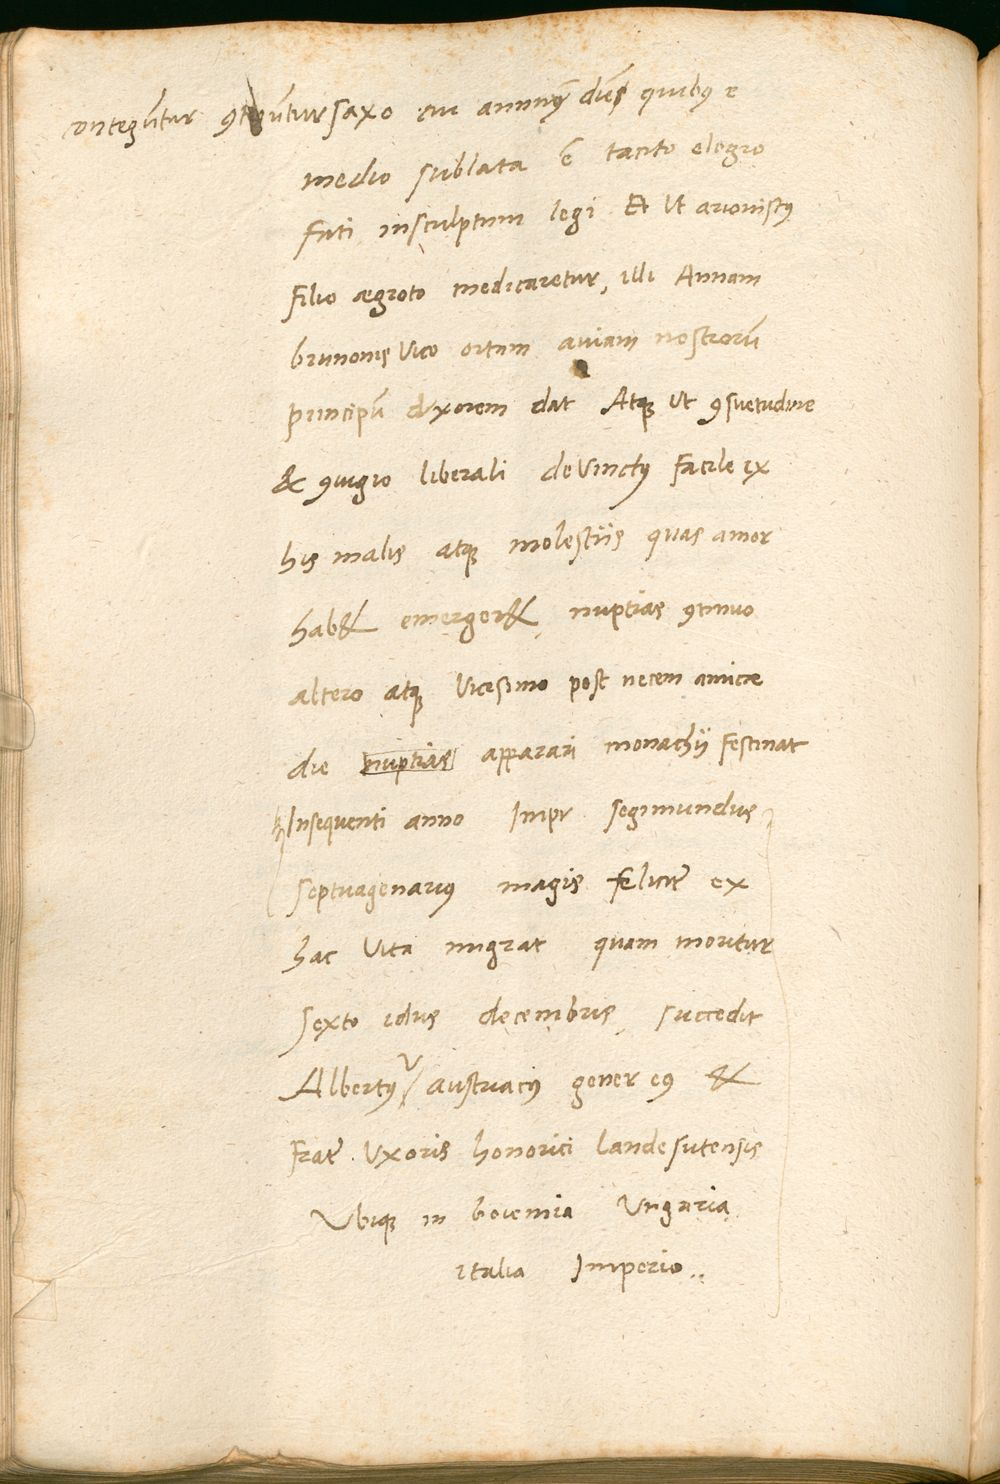 contegūtur 9teguntur saxo cui annuꝫ diesꝫ quibꝰ e
medio sublata ē tacito elogio
fati insculptum legi Et ut arionistꝰ
filio ægroto medicaretur, illi Annam
brunonis vico ortam auiam nostrorū
principū uxorem dat Atqꝫ ut ꝯsuetudine
& ꝯiugio liberali deVinctꝰ facile ex
his malis atqꝫ molestiis quas amor
hab& emerger&, nuptias ꝯtinuo
altero atqꝫ Vicesimo post necem amicæ
die nuptias apparari monachij festinat
Insequenti anno Impr segimundus
septuagenariꝰ magis felicit̄ ex
hac Vita migrat quam moritur
sexto idus decembris, succedit
Albertꝰ V austriacꝰ gener eiꝰ &
Frat̄ Uxoris honorici landesutensis
Ubiqꝫ in boiemia Ungaria
italia Imperio..